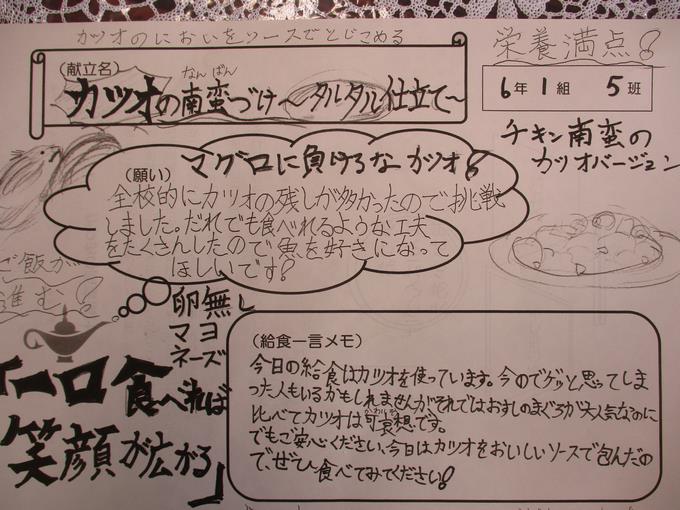 カツオのにおいをソースでとじこめる
栄養満点!
(献立名)
なんばん
カツオの南蛮づけ〜タルタル仕立て〜
6年 1組 5班
チキン南蛮の
カツオバージョン
マグロに負けるなカツオ!
(願い)
全校的にカツオの残しが多かったので挑戦
しました。だれでも食べれるような工夫
をたくさんしたので魚を好きになって
ほしいです!
ご飯が
進む!
卵無し
マヨ
ネーズ
「一口食べれば
笑顔が広がる」
(給食一言メモ)
今日の給食はカツオを使っています。今のでゲッと思ってしま
った人もいるかもしれませんがそれではおすしのまぐろが大人気なのに
かわいそう
比べてカツオは可哀想です。
でもご安心ください、今日はカツオをおいしいソースで包んだの
で、ぜひ食べてみてください!